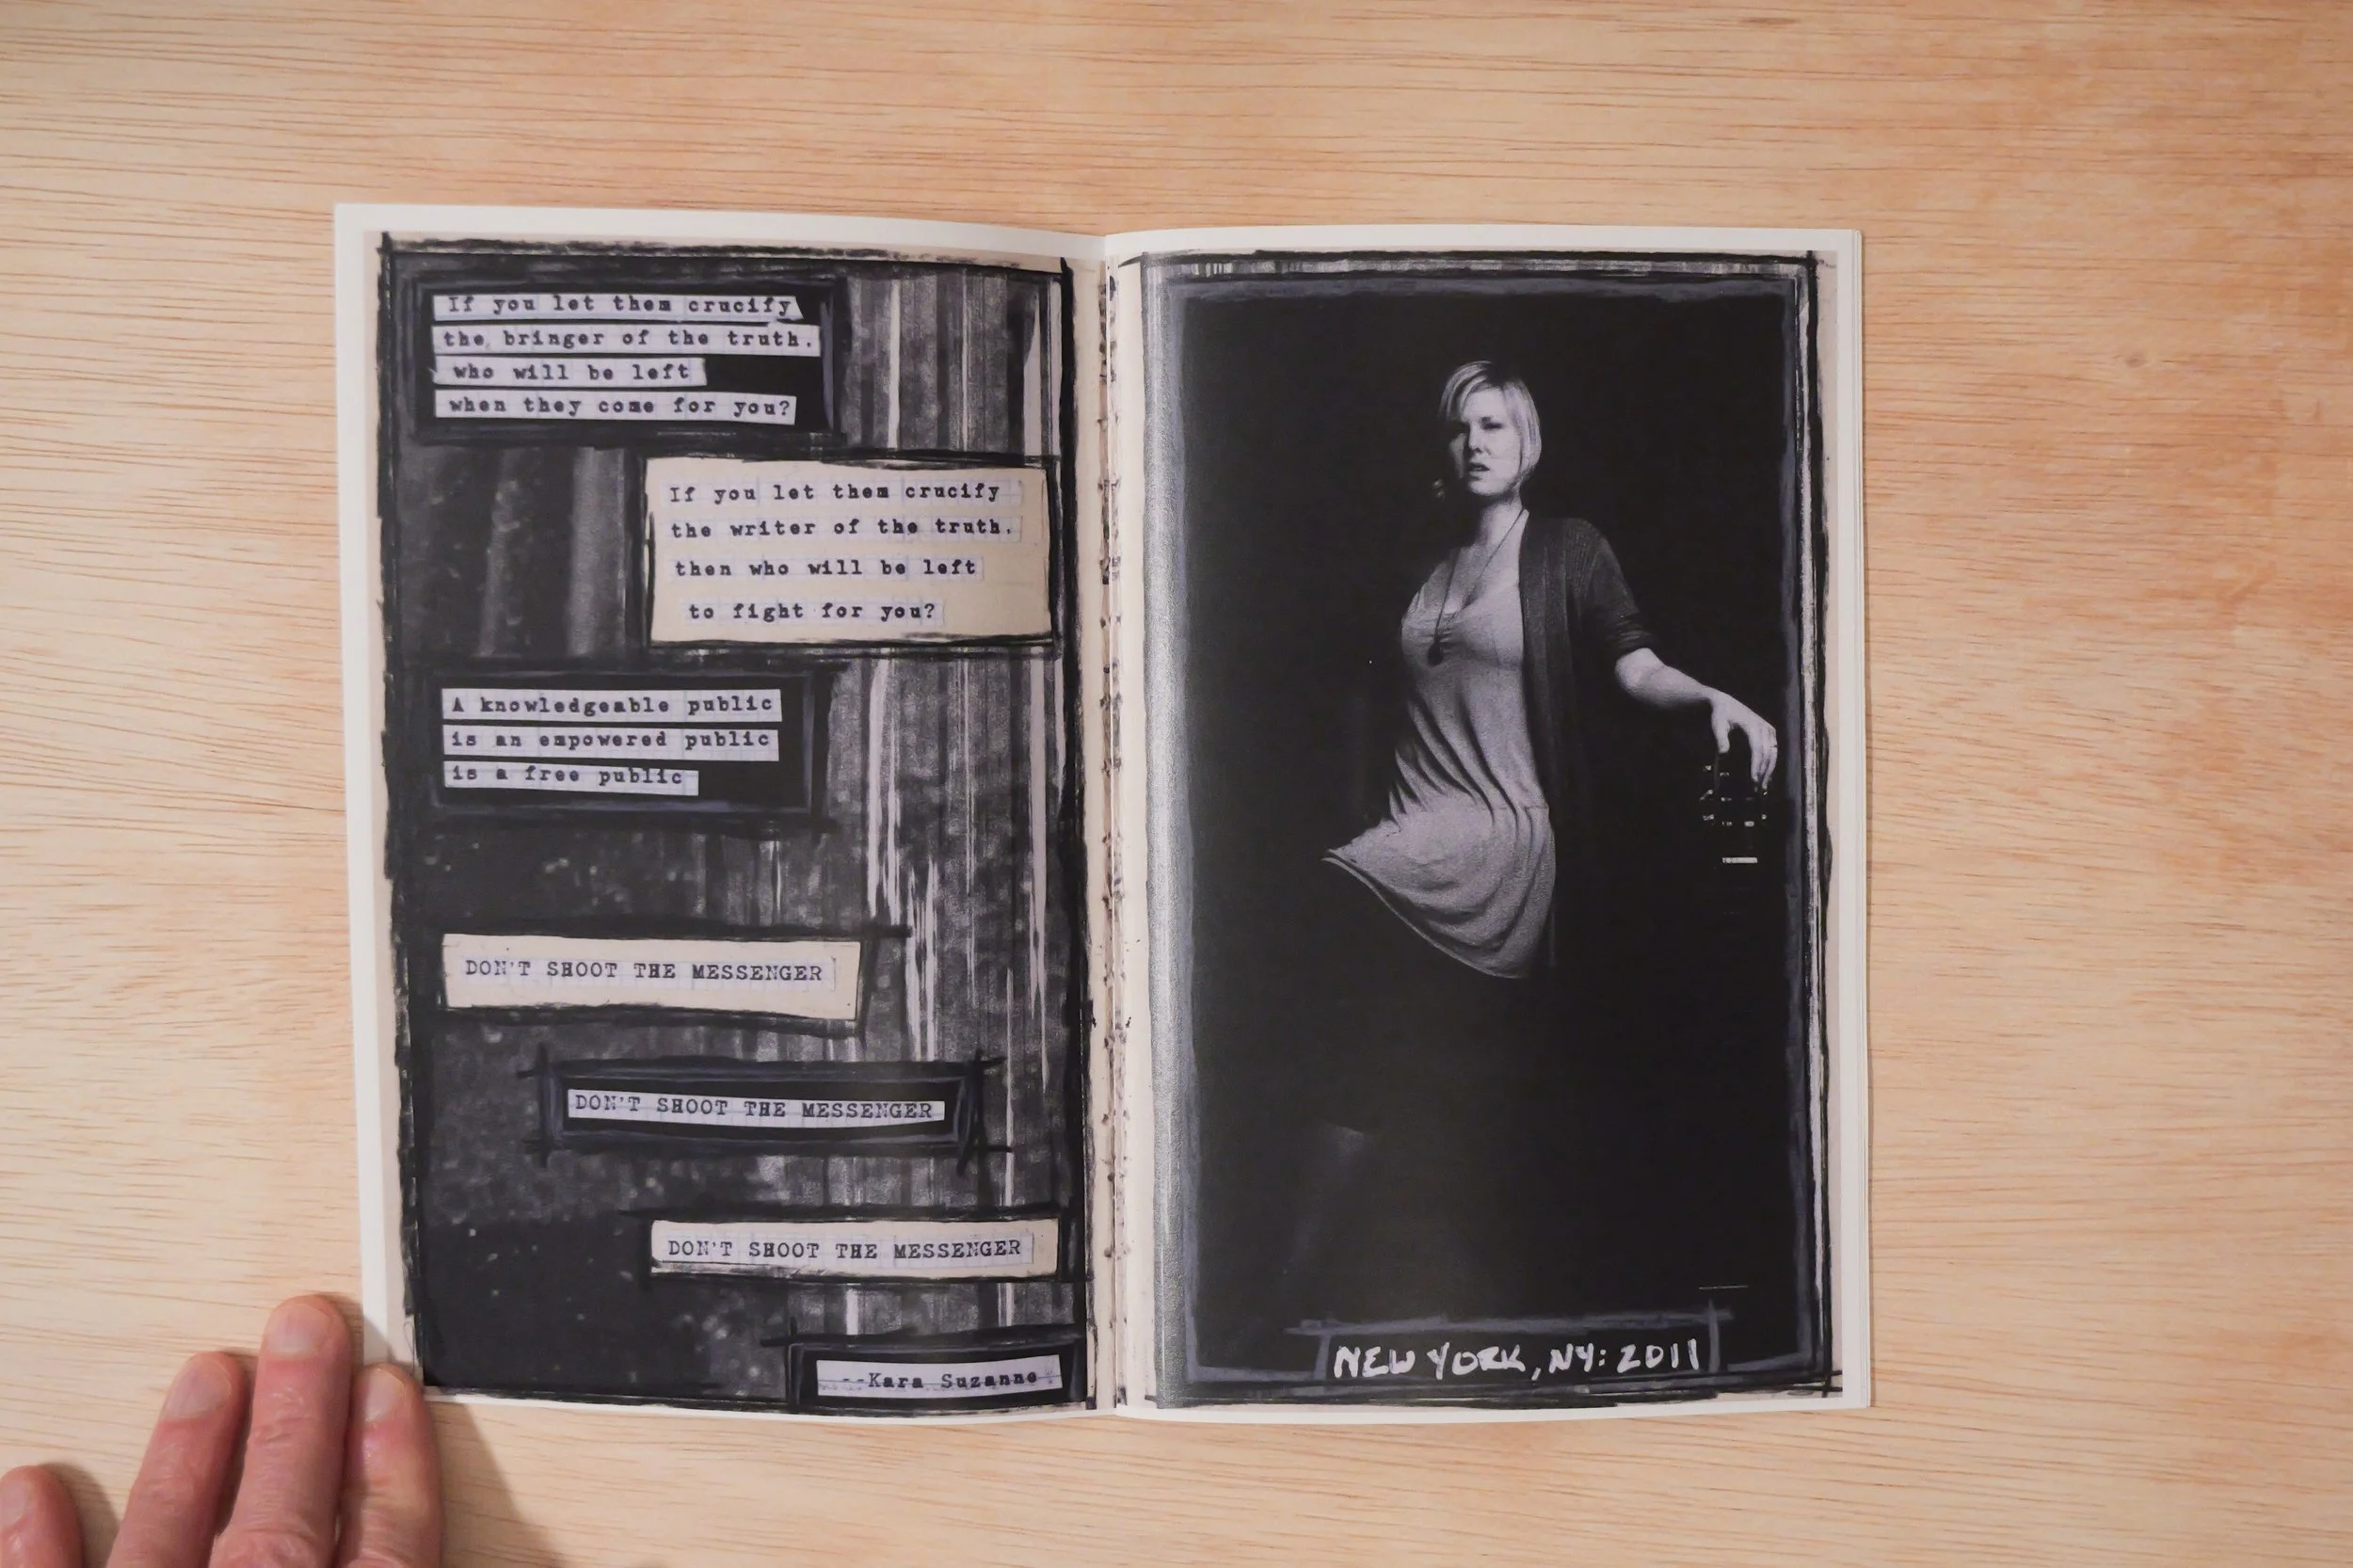 If you let them crucify
the bringer of the truth.
who will be left
when they come for you?
If you let them crucify
the writer of the truth.
then who will be left
to fight for you?
A knowledgeable public
is an empowered public
is a free public
DON'T SHOOT THE MESSENGER
DON'T SHOOT THE MESSENGER
DON'T SHOOT THE MESSENGER
--Kara Suzanne
NEW YORK, NY: 2011